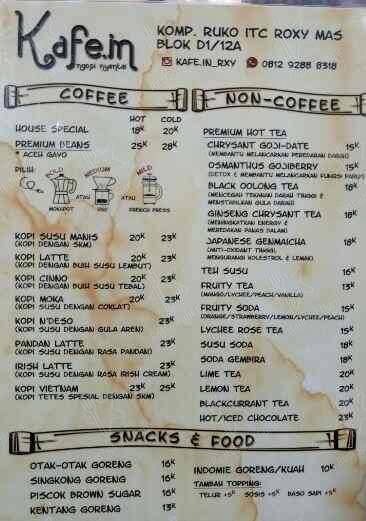 Kafe.in
ngopi nyantai
KOMP. RUKO ITC ROXY MAS
BLOK D1/12A
KAFE.IN_RXY 0812 9288 8318
COFFEE
HOT COLD
HOUSE SPECIAL 18K 20K
PREMIUM BEANS 25K 28K
* ACEH GAYO
PILIH:
BOLD MEDIUM MILD
MOKAPOT ATAU V60 ATAU FRENCH PRESS
KOPI SUSU MANIS 20K 23K
(KOPI DENGAN SKM)
KOPI LATTE 20K 23K
(KOPI DENGAN BUIH SUSU LEMBUT)
KOPI CINNO 20K 23K
(KOPI DENGAN BUIH SUSU TEBAL)
KOPI MOKA 20K 23K
(KOPI SUSU DENGAN COKLAT)
KOPI N'DESO 23K
(KOPI SUSU DENGAN GULA AREN)
PANDAN LATTE 23K
(KOPI SUSU DENGAN RASA PANDAN)
IRISH LATTE 23K
(KOPI SUSU DENGAN RASA IRISH CREAM)
KOPI VIETNAM 23K 25K
(KOPI TETES SPESIAL DENGAN SKM)
NON-COFFEE
PREMIUM HOT TEA
CHRYSANT GOJI-DATE 15K
(MEMBANTU MELANCARKAN PEREDARAN DARAH)
OSMANTHUS GOJIBERRY 15K
(DETOX & MEMBANTU MELANCARKAN FUNGSI PARU)
BLACK OOLONG TEA 18K
(MENCEGAH TEKANAN DARAH TINGGI &
MENSTABILKAN GULA DARAH)
GINSENG CHRYSANT TEA 18K
(MENINGKATKAN ENERGY &
MEREDAKAN PANAS DALAM)
JAPANESE GENMAICHA 18K
(ANTI-OXIDANT TINGGI,
MENGURANGI KOLESTROL & LEMAK)
TEH SUSU 16K
FRUITY TEA 13K
(MANGO/LYCHEE/PEACH/VANILLA)
FRUITY SODA 15K
(ORANGE/STRAWBERRY/LEMON/LYCHEE/PEACH)
LYCHEE ROSE TEA 15K
SUSU SODA 18K
SODA GEMBIRA 18K
LIME TEA 20K
LEMON TEA 20K
BLACKCURRANT TEA 20K
HOT/ICED CHOCOLATE 23K
SNACKS & FOOD
OTAK-OTAK GORENG 16K
SINGKONG GORENG 16K
PISCOK BROWN SUGAR 16K
KENTANG GORENG 13K
INDOMIE GORENG/KUAH 10K
TAMBAH TOPPING:
TELUR +5K SOSIS +5K BASO SAPI +5K